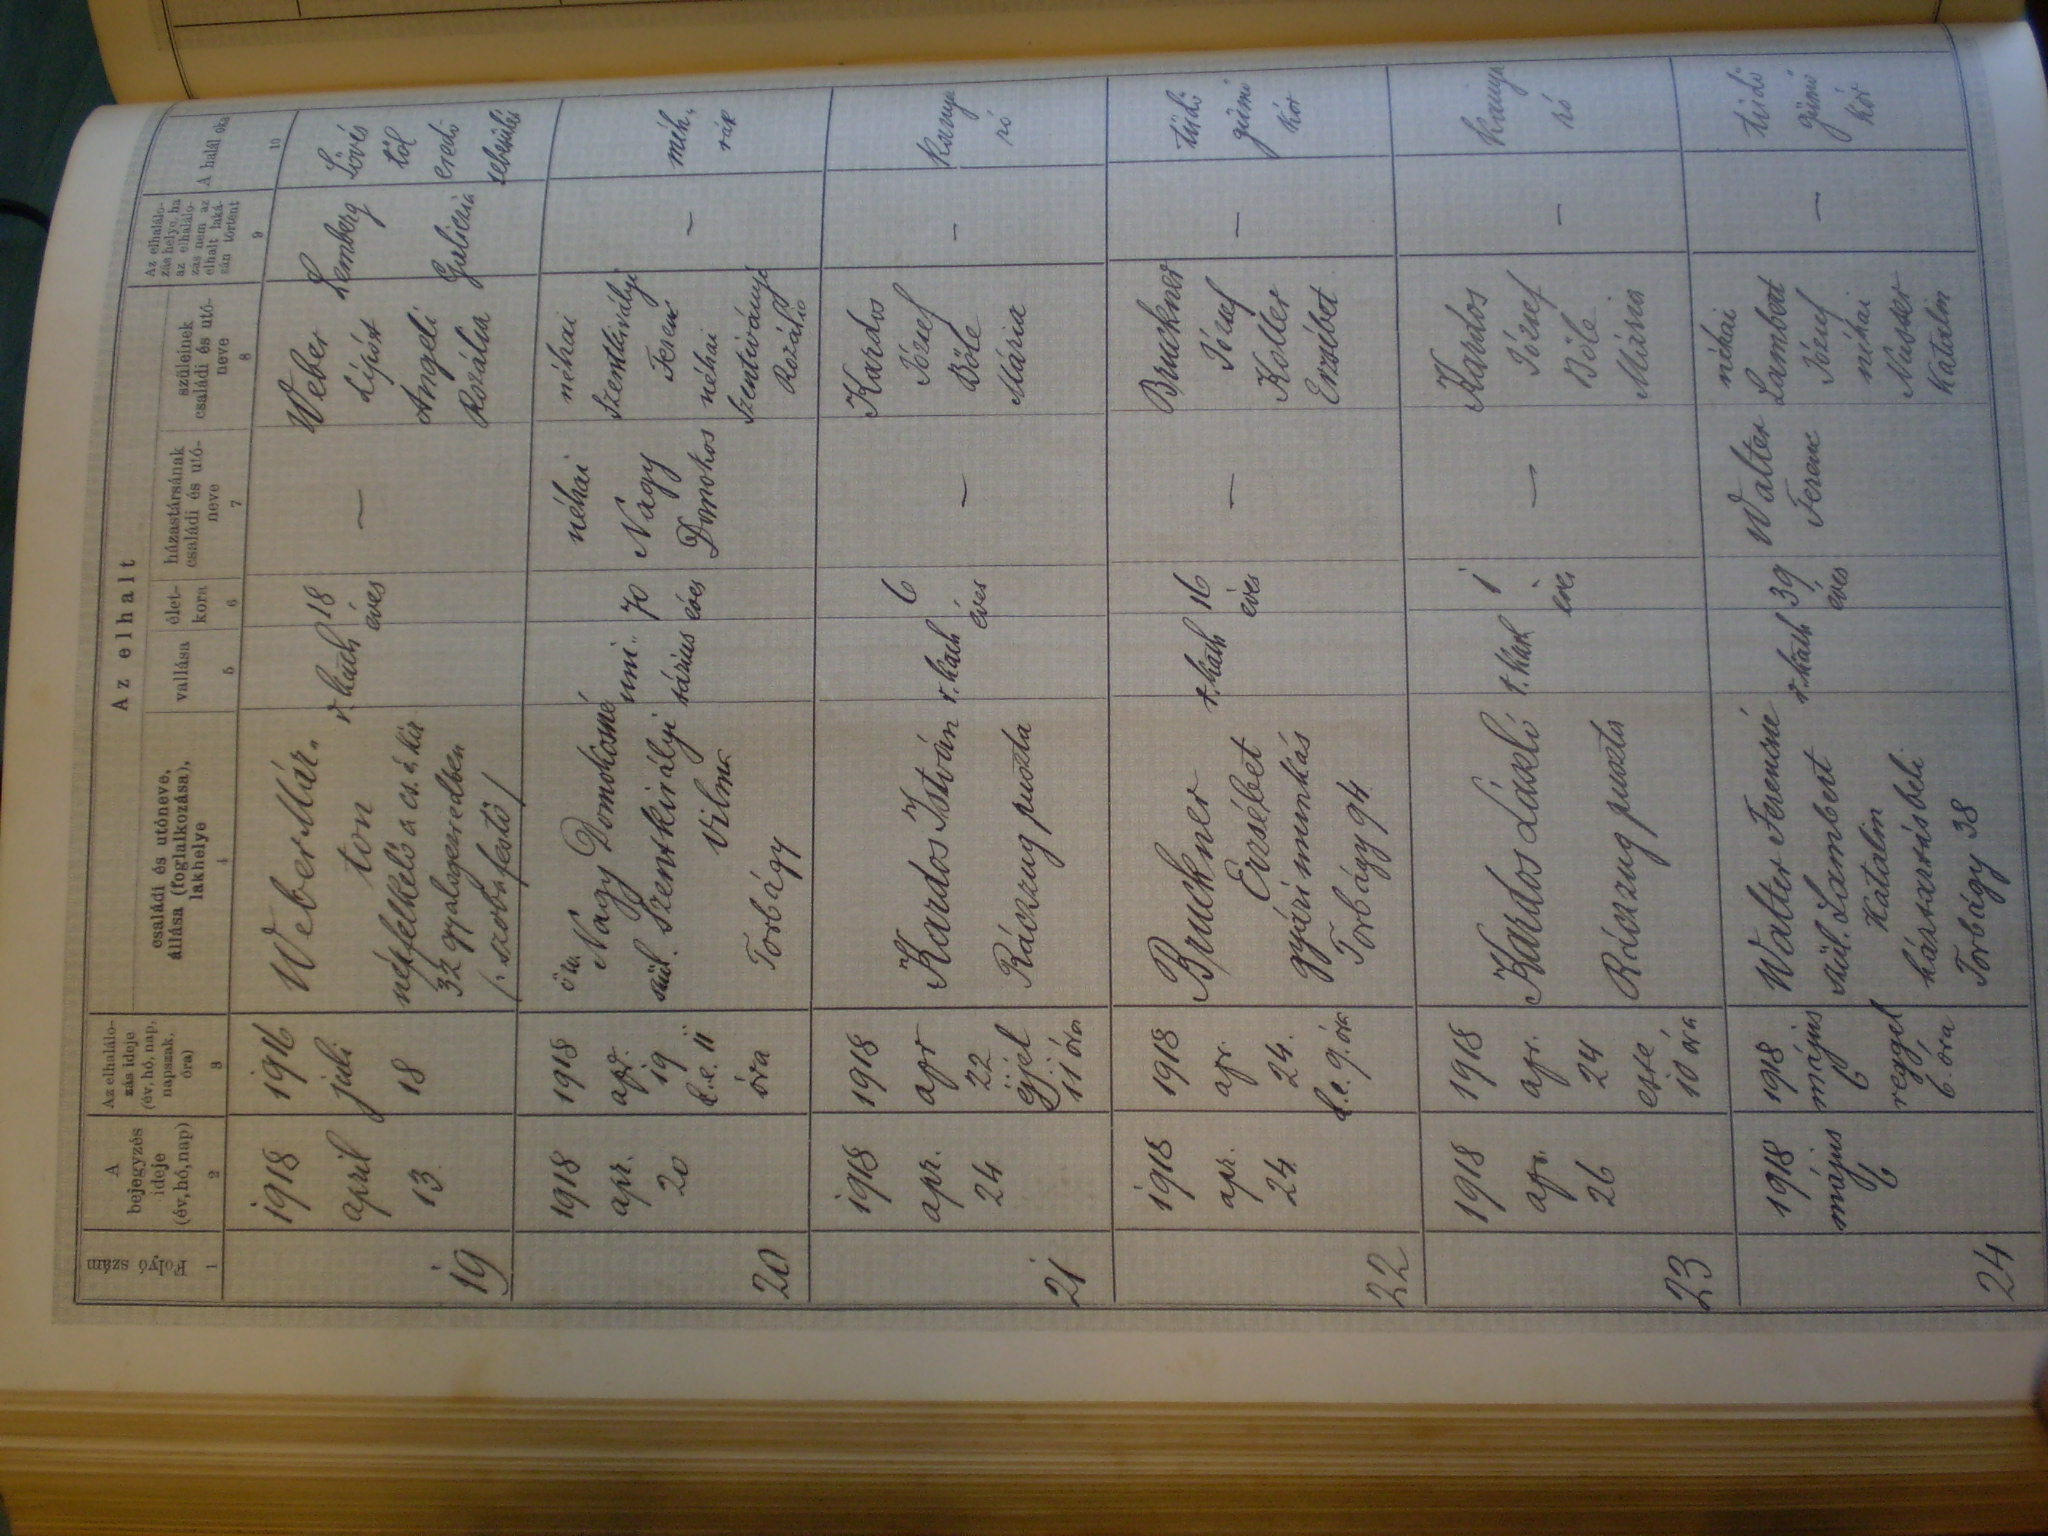 Az elhalt
Folyó szám
A
bejegyzés
ideje
(év, hó, nap)
Az elhalálo-
zás ideje
(év, hó, nap,
napszak,
óra)
családi és utóneve,
állása (foglalkozása),
lakhelye
vallása
élet-
kora
házastársának
családi és utó-
neve
szüleinek
családi és utó-
neve
Az elhalálo-
zás helye, ha
az elhalálo-
zás nem az
elhalt laká-
sán történt
A halál oka
1
2
3
4
5
6
7
8
9
10
19
1918
april
13
1916
juli
18
Weber Már-
ton
népfelkelő a cs. és kir
32 gyalogezredben
/: szobafestő /
r. kath
18
éves
—
Weber
Lipót
Angeli
Rozália
Lemberg
Galiczia
Lövés
től
eredő
sebesülés
20
1918
apr.
20
1918
apr.
19
d. e. 11
óra
özv. Nagy Domokosné
szül. Szentkirályi
Vilma
Torbágy
uni-
tárius
70
éves
néhai
Nagy
Domokos
néhai
Szentkirályi
Ferenc
néhai
Szentiványi
Rozália
—
méh-
rák
21
1918
apr.
24
1918
apr
22
éjjel
11 óra
Kardos István
Ráczug puszta
r. kath
6
éves
—
Kardos
József
Böle
Mária
—
kanya
ró
22
1918
apr.
24
1918
apr.
24.
d. e. 9. óra
Bruckner
Erzsébet
gyári munkás
Torbágy 94
r. kath
16
éves
—
Bruckner
József
Koller
Erzsébet
—
tüdő
gümő
kór
23
1918
apr.
26
1918
apr.
24
este
10 óra
Kardos László
Ráczug puszta
r. kath
1
éves
—
Kardos
József
Böle
Mária
—
kanya
ró
24
1918
május
6
1918
május
6
reggel
6. óra
Walter Ferencné
szül. Lambert
Katalin
háztartásbeli
Torbágy 38
r. kath
39
éves
Walter
Ferenc
néhai
Lambert
József
néhai
Nusser
Katalin
—
tüdő
gümő
kór